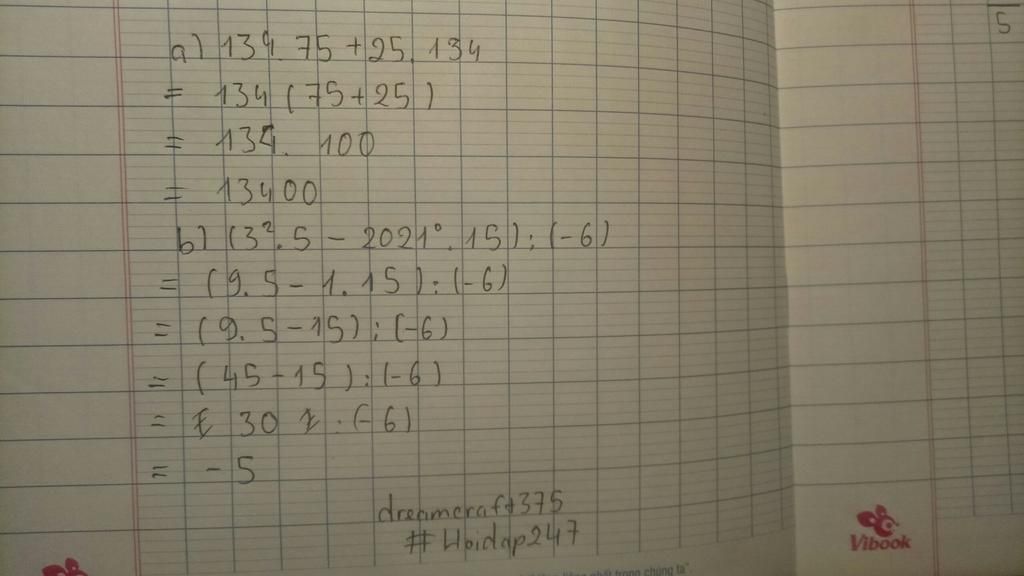 5
a) 134.75+25.134
= 134(75+25)
= 134. 100
= 13400
b) (3².5 - 2021°.15):(-6)
= (9.5 - 1.15):(-6)
= (9.5-15):(-6)
= (45-15):(-6)
= 30 :(-6)
= -5
dreamcraft375
#Hoidap247
Vibook
nhất trong chúng ta".